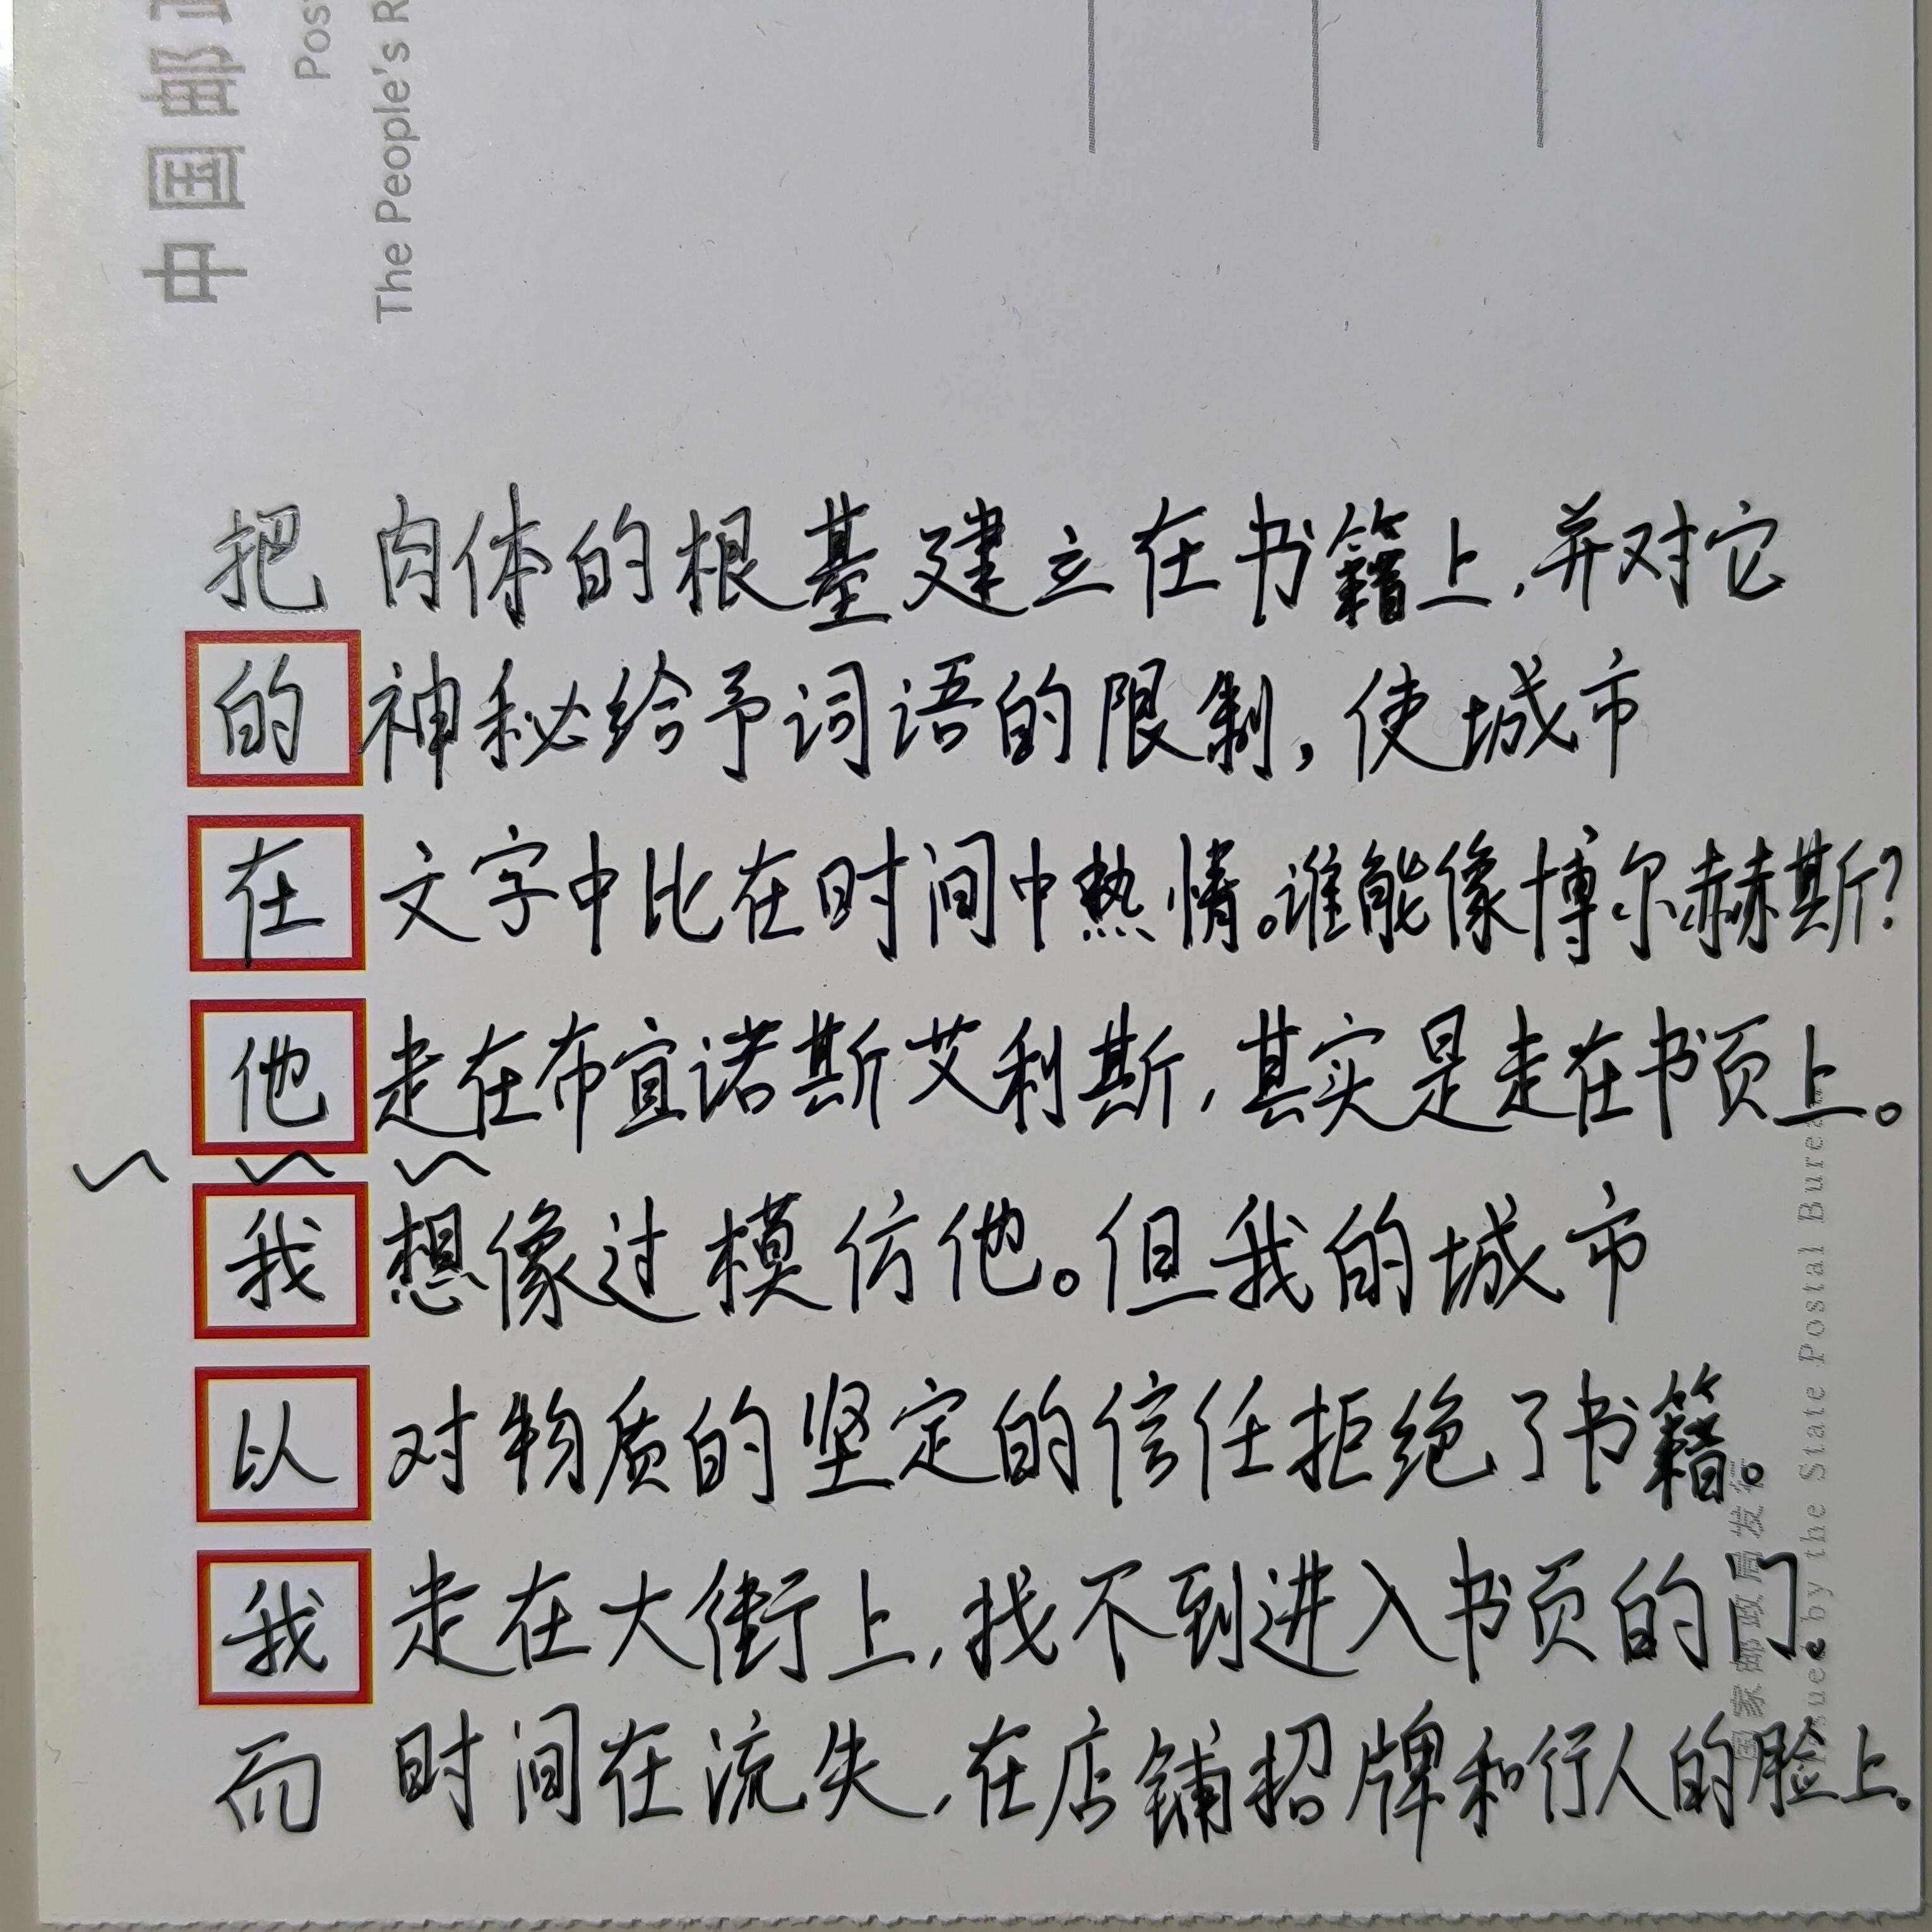 中国邮政
Pos
The People's R
把肉体的根基建立在书籍上,并对它
的神秘给予词语的限制,使城市
在文字中比在时间中热情。谁能像博尔赫斯?
他走在布宜诺斯艾利斯,其实是走在书页上。
我想像过模仿他。但我的城市
以对物质的坚定的信任拒绝了书籍。
我走在大街上,找不到进入书页的门。
而时间在流失,在店铺招牌和行人的脸上。
国家邮政局发行
Issued by the State Postal Bureau